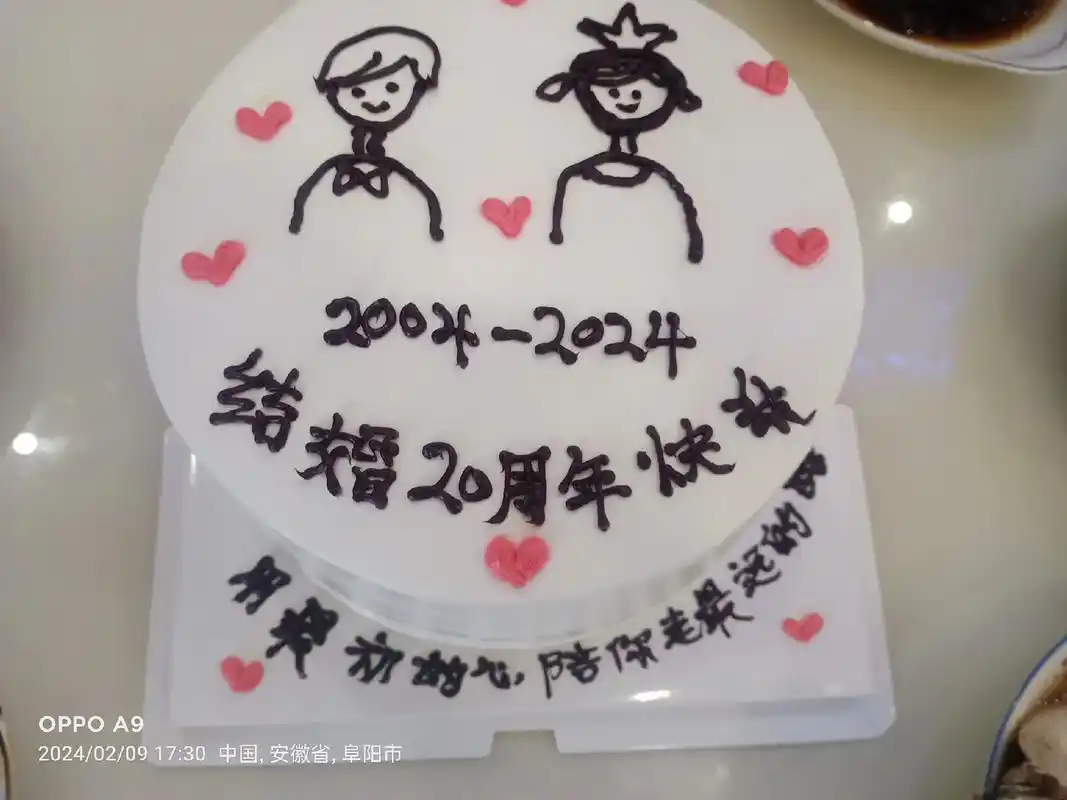 2004-2024
结婚20周年快乐
用最初的心,陪你走最远的路
OPPO A9
2024/02/09 17:30 中国, 安徽省, 阜阳市